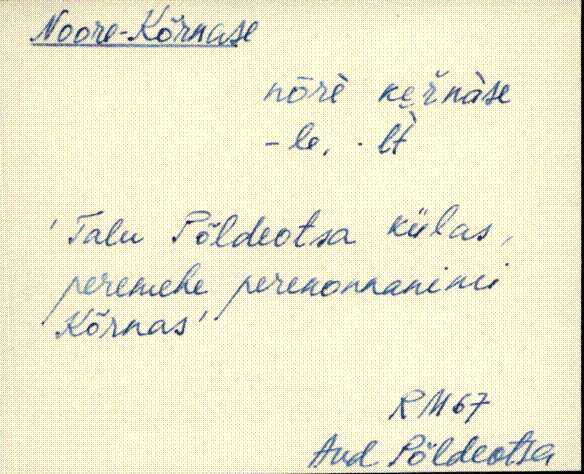 Noore-Kõrnase
nōrè kern̆àse
-le, -lt̀
'Talu Põldeotsa külas,
peremehe perekonnanimi
Kõrnas'
RM67
Aud Põldeotsa